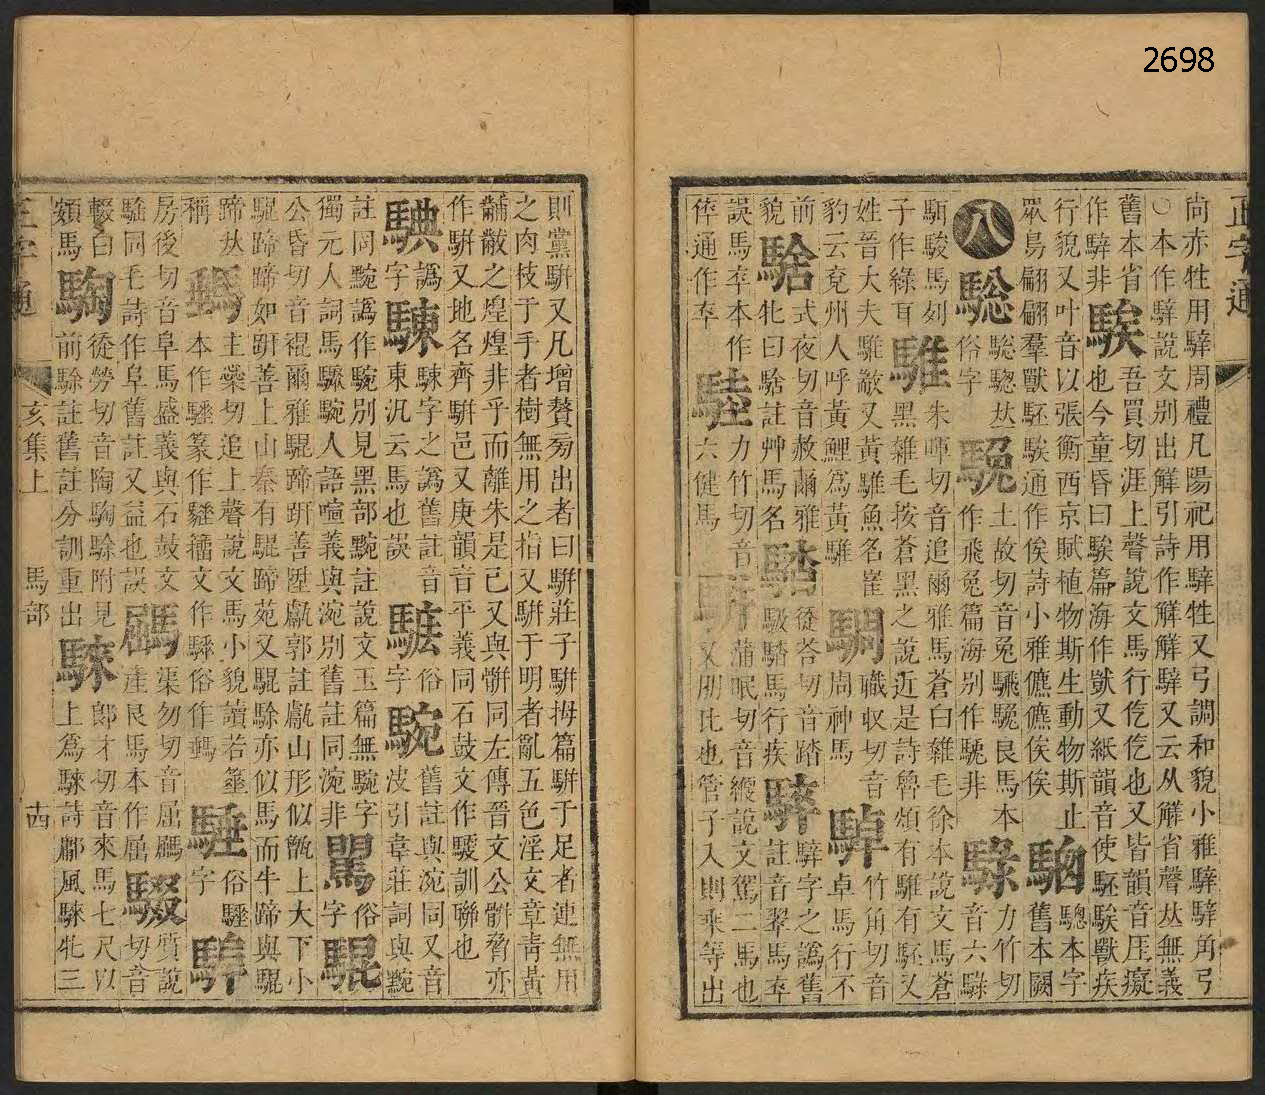 2698
正字通
尚亦牲用騂周禮凡陽祀用騂牲又弓調和貌小雅騂騂角弓
○本作騂說文別出觲引詩作觲觲騂又云从觲省聲𠀤無義
舊本省作騂非
騃
吾買切涯上聲說文馬行仡仡也又皆韻音厓癡
也今童昏曰騃篇海作獃又紙韻音使駓騃獸疾
行貌又叶音以張衡西京賦植物斯生動物斯止
眾鳥翩翩羣獸駓騃通作俟詩小雅儦儦俟俟
騘
驄本字
舊本闕
八
騘
騘驄𠀤
俗字
騉
土故切音兔騛騉良馬本
作飛兔篇海別作駣非
騄
力竹切
音六騄
駬駿馬列
子作綠耳
騅
朱暉切音追爾雅馬蒼白雜毛徐本說文馬蒼
黑雜毛按蒼黑之說近是詩魯頌有騅有駓又
姓晉大夫騅歂又黃騅魚名崔
豹云兗州人呼黃鯉為黃騅
騆
職收切音
周神馬
䮓
竹角切音
卓馬行不
前貌
䮜
式夜切音赦爾雅
牝曰䮜註艸馬名
䮚
徒荅切音踏
馺䮚馬行疾
騂
騂字之譌舊
註音翠馬卒
誤馬卒本作
倅通作卒
騄
力竹切音
六健馬
騈
蒲眠切音緶說文駕二馬也
又朋比也管子入則乘等出
則黨騈又凡增贅旁出者曰騈莊子騈拇篇騈于足者連無用
之肉枝于手者樹無用之指又騈于明者亂五色淫文章青黃
黼黻之煌煌非乎而離朱是已又與骿同左傳晉文公骿脅亦
作騈又地名齊騈邑又庚韻音平義同石鼓文作䮰訓聯也
騝
譌
字
騋
騋字之譌舊註音
東汎云馬也誤
俗
字
䮍
舊註與涴同又音
㳇引韋莊詞與䵫
註同䵫譌作䮍別見黑部䵫註說文玉篇無䮍字
獨元人詞馬驟䮍人語喧義與涴別舊註同涴非
罵
俗
字
騉
公昏切音裩爾雅騉蹄趼善陞甗郭註甗山形似甑上大下小
騉蹄蹄如趼善上山秦有騉蹄苑又騉駼亦似馬而牛蹄與騉
蹄𠀤
稱
主橤切追上聲說文馬小貌讀若箠
本作騅篆作籀文作俗作
俗
字
房後切音阜馬盛義與石鼓文
同毛詩作阜舊註又益也誤
渠勿切音屈
產良馬本作屈
騟
質說
切音
輟白
頟馬
騊
徒勞切音陶騊駼附見
前駼註舊註分訓重出
騋
郎才切音來馬七尺以
上為騋詩鄘風騋牝三
正字通
亥集上
馬部
十四